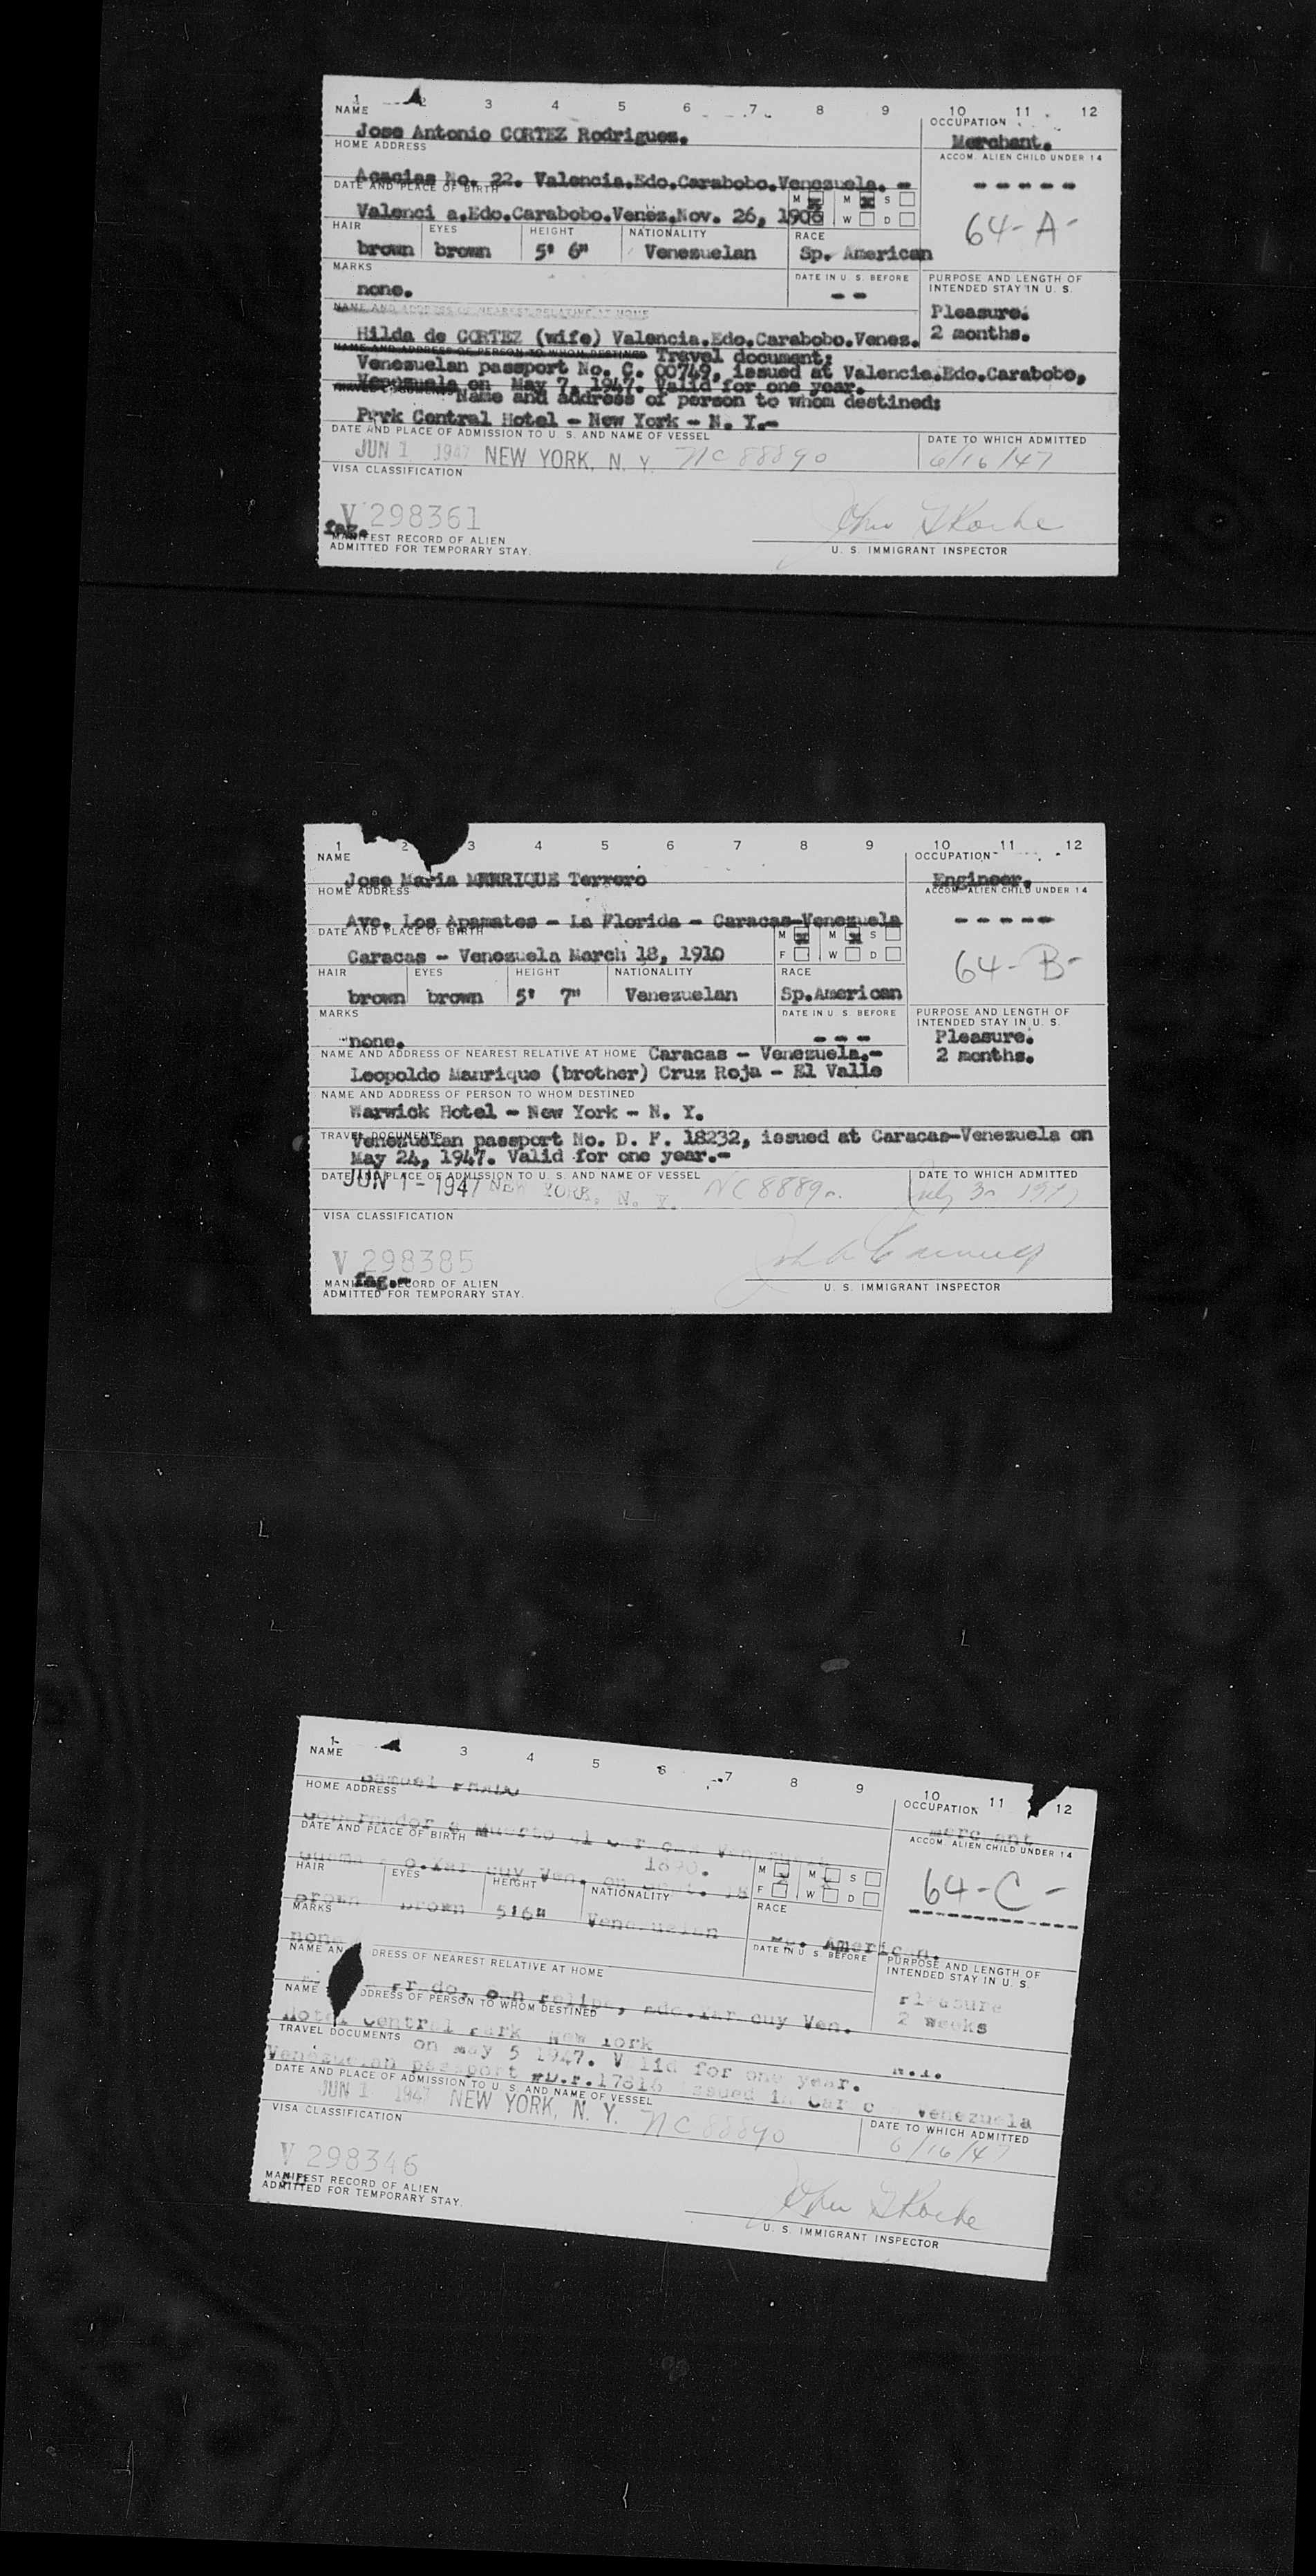 1 2 3 4 5 6 7 8 9 10 11 12
NAME OCCUPATION
Jose Antonio CORTEZ Rodriguez. Merchant.
HOME ADDRESS ACCOM. ALIEN CHILD UNDER 14
Acacias No. 22. Valencia.Edo.Carabobo.Venezuela. - - - - - -
DATE AND PLACE OF BIRTH M M S
Valenci a.Edo.Carabobo.Venez.Nov. 26, 1906 W D 64-A-
HAIR EYES HEIGHT NATIONALITY RACE
brown brown 5' 6" Venezuelan Sp. American
MARKS DATE IN U. S. BEFORE PURPOSE AND LENGTH OF INTENDED STAY IN U. S.
none. - - Pleasure.
NAME AND ADDRESS OF NEAREST RELATIVE AT HOME
Hilda de CORTEZ (wife) Valencia.Edo.Carabobo.Venez. 2 months.
NAME AND ADDRESS OF PERSON TO WHOM DESTINED Travel document:
Venezuelan passport No. C. 00749, issued at Valencia.Edo.Carabobo,
Venezuela on May 7, 1947. Valid for one year.
TRAVEL DOCUMENTS Name and address of person to whom destined:
Park Central Hotel - New York - N. Y.-
DATE AND PLACE OF ADMISSION TO U. S. AND NAME OF VESSEL DATE TO WHICH ADMITTED
JUN 1 1947 NEW YORK, N. Y. NC 88890 6/16/47
VISA CLASSIFICATION
V 298361
faz.
MANIFEST RECORD OF ALIEN
ADMITTED FOR TEMPORARY STAY. U. S. IMMIGRANT INSPECTOR
1 2 3 4 5 6 7 8 9 10 11 12
NAME OCCUPATION
Jose Maria MANRIQUE Terrero Engineer.
HOME ADDRESS ACCOM. ALIEN CHILD UNDER 14
Ave. Los Apamates - La Florida - Caracas-Venezuela - - - - -
DATE AND PLACE OF BIRTH M M S
Caracas - Venezuela March 18, 1910 F W D 64-B-
HAIR EYES HEIGHT NATIONALITY RACE
brown brown 5' 7" Venezuelan Sp.American
MARKS DATE IN U. S. BEFORE PURPOSE AND LENGTH OF INTENDED STAY IN U. S.
none. - - - Pleasure.
NAME AND ADDRESS OF NEAREST RELATIVE AT HOME Caracas - Venezuela.- 2 months.
Leopoldo Manrique (brother) Cruz Roja - El Valle
NAME AND ADDRESS OF PERSON TO WHOM DESTINED
Warwick Hotel - New York - N. Y.
TRAVEL DOCUMENTS
Venezuelan passport No. D. F. 18232, issued at Caracas-Venezuela on
May 24, 1947. Valid for one year.-
DATE AND PLACE OF ADMISSION TO U. S. AND NAME OF VESSEL DATE TO WHICH ADMITTED
JUN 1 - 1947 NEW YORK, N. Y. NC 88890
VISA CLASSIFICATION
V 298385
faz.-
MANIFEST RECORD OF ALIEN
ADMITTED FOR TEMPORARY STAY. U. S. IMMIGRANT INSPECTOR
1 3 4 5 6 7 8 9 10 11 12
NAME OCCUPATION
Samuel merchant
HOME ADDRESS ACCOM. ALIEN CHILD UNDER 14
Gobernador a Muerto
DATE AND PLACE OF BIRTH 1890. M M S
F W D 64-C-
HAIR EYES HEIGHT NATIONALITY RACE
brown brown 5'6" Venezuelan American.
MARKS DATE IN U. S. BEFORE PURPOSE AND LENGTH OF INTENDED STAY IN U. S.
none
NAME AN DRESS OF NEAREST RELATIVE AT HOME pleasure
Ven. 2 weeks
NAME DDRESS OF PERSON TO WHOM DESTINED
Hotel Central Park New York N.Y.
TRAVEL DOCUMENTS on May 5 1947. Valid for one year.
Venezuelan passport #D.F.17818 issued in Caracas Venezuela
DATE AND PLACE OF ADMISSION TO U. S. AND NAME OF VESSEL DATE TO WHICH ADMITTED
JUN 1 1947 NEW YORK, N. Y. NC 88890 6/16/47
VISA CLASSIFICATION
V 298346
MANIFEST RECORD OF ALIEN
ADMITTED FOR TEMPORARY STAY. U. S. IMMIGRANT INSPECTOR